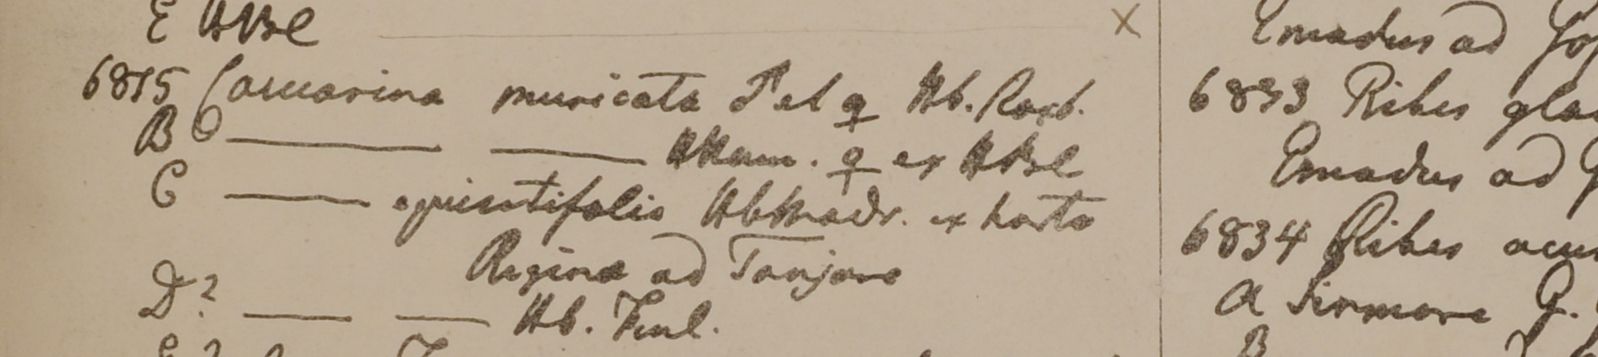 E HBC
6815 Casuarina muricata ♂ et ♀ Hb. Roxb.
B ——— ——— HHam. ♀ ex HBC
C ——— equisetifolia Hb Madr. ex horto
Reginae ad Tanjore
D? ——— ——— Hb. Finl.
Emadus ad
6833 Ribes gla
Emadus ad
6834 Ribes acu
A Sirmore G.
B